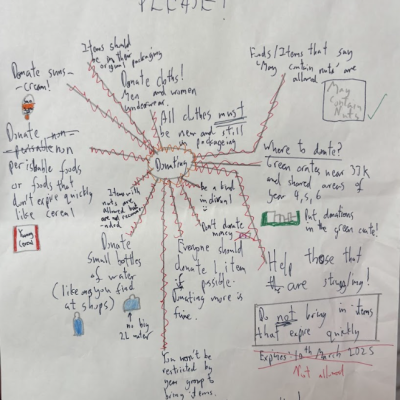 PLEASE!
Items should
be in their
original packaging
Foods/Items that say
"May contain nuts" are
allowed
May
Contain
Nuts
Donate suns-
-cream!
Donate cloths!
Men and women
underwear.
All clothes must
be new and still
in packaging
Donate non-
perishable non
perishable foods
or foods that
don't expire quickly
like cereal
Donating
Where to donate?
Green crates near 3JK
and shared areas of
year 4, 5, 6
Put donations
in the green crate!
Items with
nuts are
allowed but
are not recomme
-nded
Be a kind
individual!
Don't donate
money
Donate
small bottles
of water
(like ones you find
at shops)
no big
2L water
Everyone should
donate 1 item
if possible.
Donating more is
fine.
Help those that
are struggling!
Do not bring in items
that expire quickly
Expires: 10th March 2025
Not allowed
You won't be
restricted by
year group to
bring items.